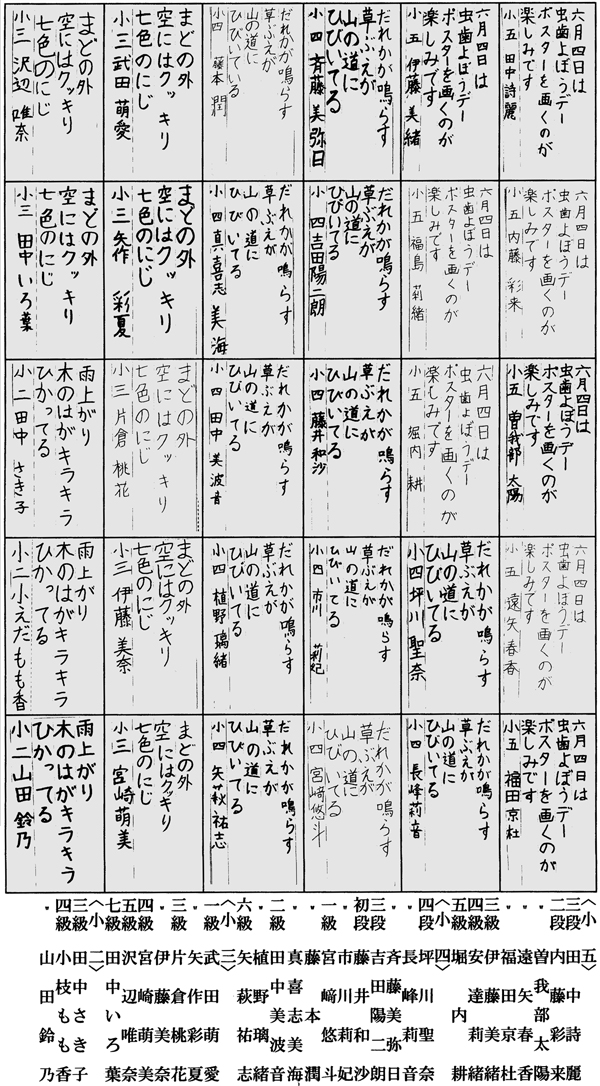 六月四日は
虫歯よぼうデー
ポスターを画くのが
楽しみです
小五 田中詩麗
六月四日は
虫歯よぼうデー
ポスターを画くのが
楽しみです
小五 内藤 彩来
六月四日は
虫歯よぼうデー
ポスターを画くのが
楽しみです
小五 曽我部 太陽
六月四日は
虫歯よぼうデー
ポスターを画くのが
楽しみです
小五 遠矢 春香
六月四日は
虫歯よぼうデー
ポスターを画くのが
楽しみです
小五 福田京杜
六月四日は
虫歯よぼうデー
ポスターを画くのが
楽しみです
小五 伊藤美緒
六月四日は
虫歯よぼうデー
ポスターを画くのが
楽しみです
小五 福島 莉緒
六月四日は
虫歯よぼうデー
ポスターを画くのが
楽しみです
小五 堀内 耕
だれかが鳴らす
草ぶえが
山の道に
ひびいてる
小四 坪川 聖奈
だれかが鳴らす
草ぶえが
山の道に
ひびいてる
小四 長峰莉音
だれかが鳴らす
草ぶえが
山の道に
ひびいてる
小四 斉藤美弥日
だれかが鳴らす
草ぶえが
山の道に
ひびいてる
小四 吉田陽二朗
だれかが鳴らす
草ぶえが
山の道に
ひびいてる
小四 藤井和沙
だれかが鳴らす
草ぶえが
山の道に
ひびいてる
小四 市川 莉妃
だれかが鳴らす
草ぶえが
山の道に
ひびいてる
小四 宮﨑悠斗
だれかが鳴らす
草ぶえが
山の道に
ひびいてる
小四 藤本 潤
だれかが鳴らす
草ぶえが
山の道に
ひびいてる
小四 真喜志 美海
だれかが鳴らす
草ぶえが
山の道に
ひびいてる
小四 田中 美波音
だれかが鳴らす
草ぶえが
山の道に
ひびいてる
小四 植野璃緒
だれかが鳴らす
草ぶえが
山の道に
ひびいてる
小四 矢萩祐志
まどの外
空にはクッキリ
七色のにじ
小三 武田萌愛
まどの外
空にはクッキリ
七色のにじ
小三 矢作 彩夏
まどの外
空にはクッキリ
七色のにじ
小三 片倉 桃花
まどの外
空にはクッキリ
七色のにじ
小三 伊藤 美奈
まどの外
空にはクッキリ
七色のにじ
小三 宮崎萌美
まどの外
空にはクッキリ
七色のにじ
小三 沢辺 唯奈
まどの外
空にはクッキリ
七色のにじ
小三 田中 いろ葉
雨上がり
木のはがキラキラ
ひかってる
小二 田中 さき子
雨上がり
木のはがキラキラ
ひかってる
小二 小えだ もも香
雨上がり
木のはがキラキラ
ひかってる
小二 山田 鈴乃
〈小五〉
三段 田中詩麗
二段 内藤彩来
〃 曽我部太陽
〃 遠矢春香
〃 福田京杜
三級 伊藤美緒
四級 安達莉緒
五級 堀内耕
〈小四〉
四段 坪川聖奈
〃 長峰莉音
〃 斉藤美弥日
三段 吉田陽二朗
初段 藤井和沙
〃 市川莉妃
一級 宮﨑悠斗
〃 藤本潤
〃 真喜志美海
二級 田中美波音
〃 植野璃緒
六級 矢萩祐志
〈小三〉
一級 武田萌愛
〃 矢作彩夏
三級 片倉桃花
〃 伊藤美奈
四級 宮崎萌美
五級 沢辺唯奈
七級 田中いろ葉
〈小二〉
三級 田中さき子
四級 小枝もも香
〃 山田鈴乃